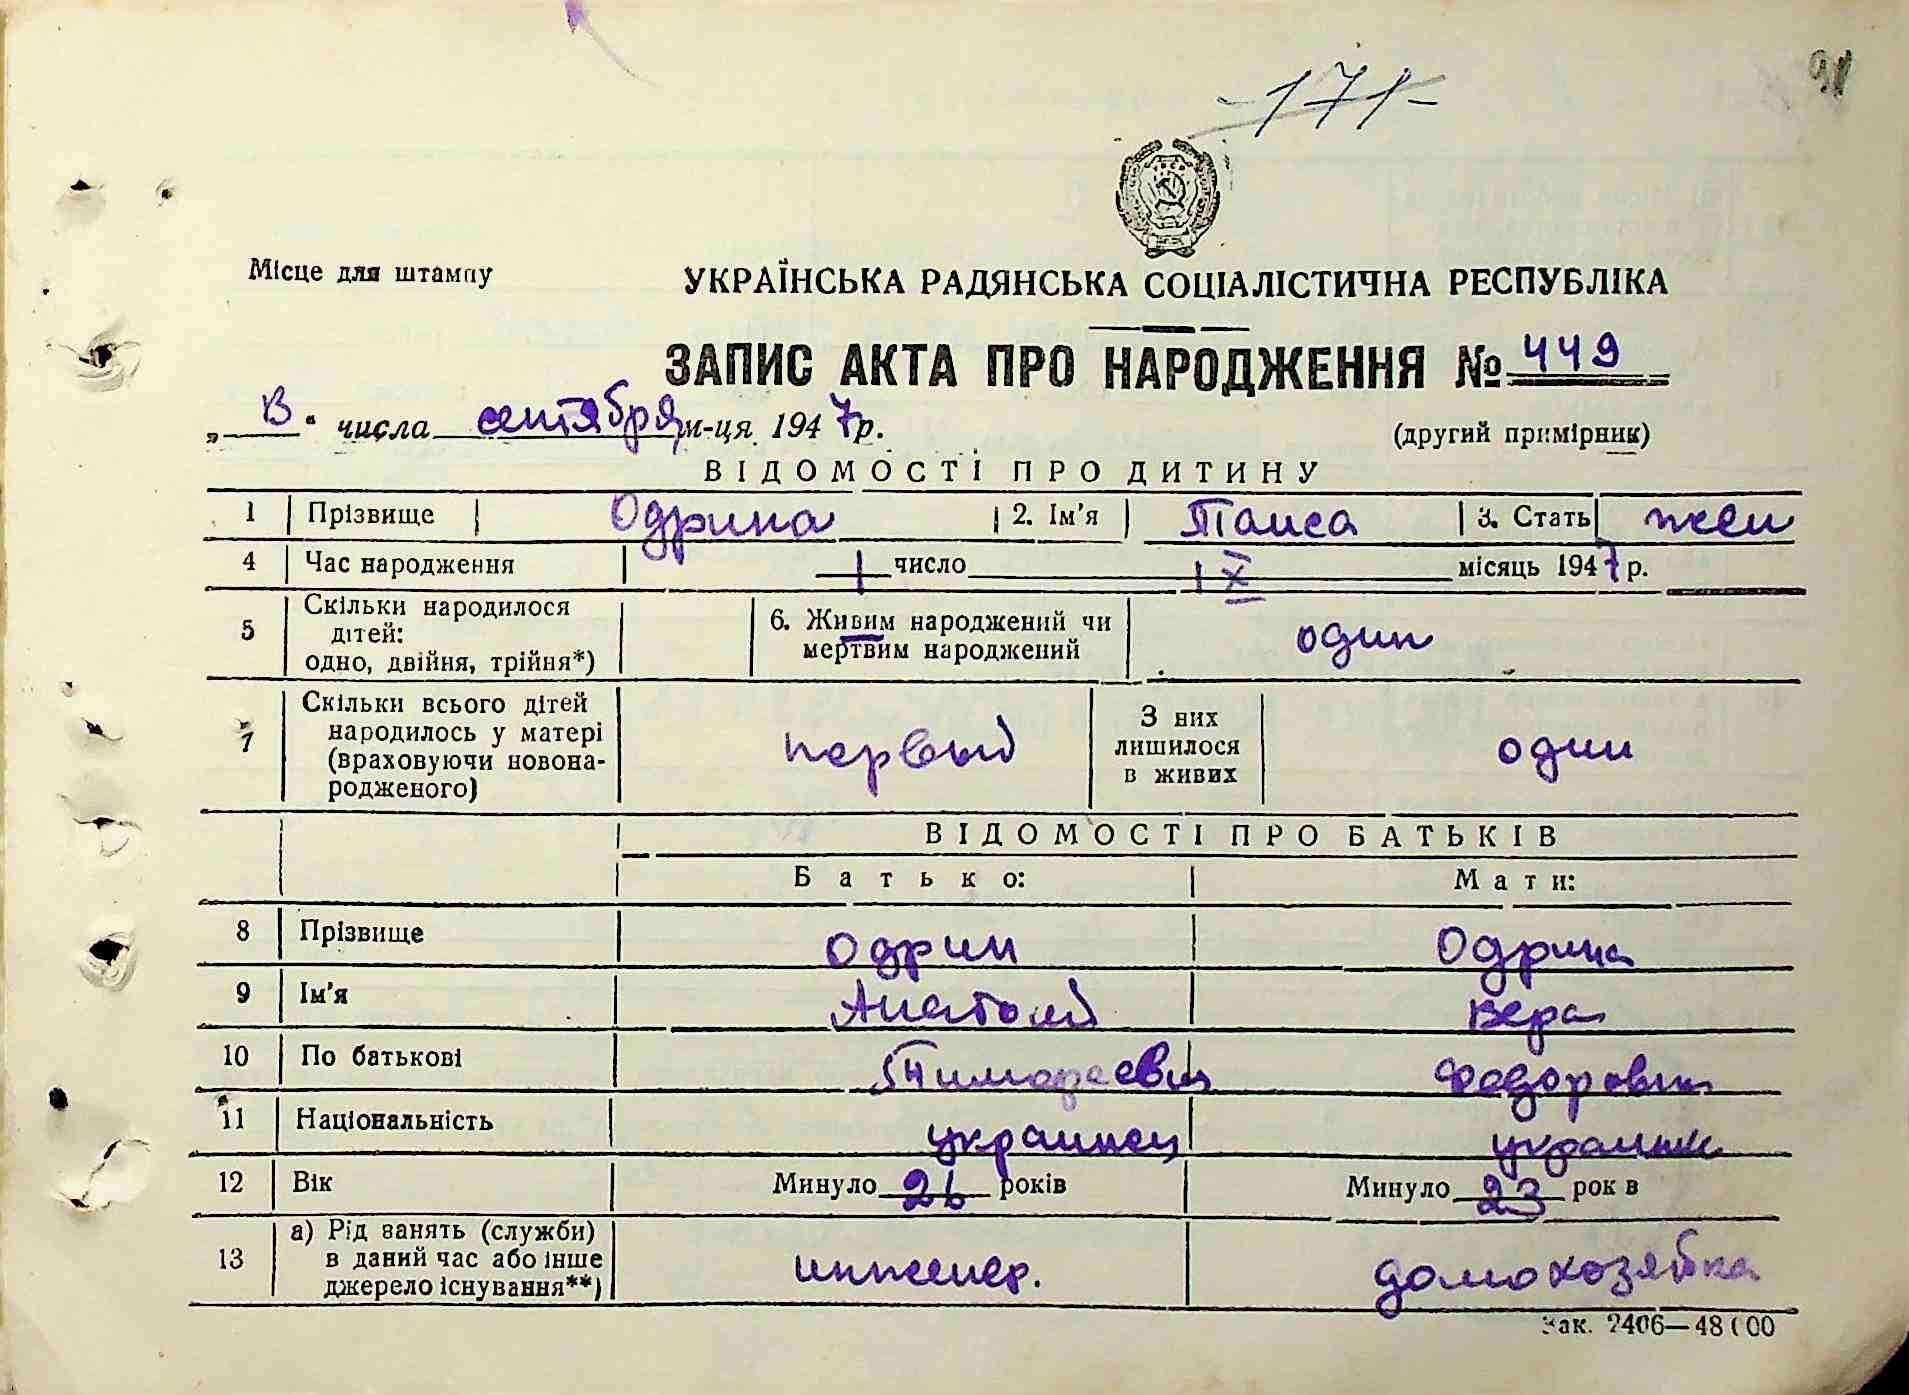 -171-
91
Місце для штампу
УКРАЇНСЬКА РАДЯНСЬКА СОЦІАЛІСТИЧНА РЕСПУБЛІКА
ЗАПИС АКТА ПРО НАРОДЖЕННЯ № 449
„ " числа сентября м-ця 1947 р.
(другий примірник)
ВІДОМОСТІ ПРО ДИТИНУ
1 Прізвище Одрина 2. Ім'я Таиса 3. Стать жен
4 Час народження 1 число IX місяць 1947 р.
5 Скільки народилося дітей: одно, двійня, трійня*) 6. Живим народжений чи мертвим народжений один
7 Скільки всього дітей народилось у матері (враховуючи новонародженого) первый З них лишилося в живих один
ВІДОМОСТІ ПРО БАТЬКІВ
Батько: Мати:
8 Прізвище Одрин Одрина
9 Ім'я Анатолий Вера
10 По батькові Тимофеевич Федоровна
11 Національність украинец украинк
12 Вік Минуло 26 років Минуло 23 рок в
13 а) Рід занять (служби) в даний час або інше джерело існування**) инженер. домохозяйка
Зак. 2406—48000